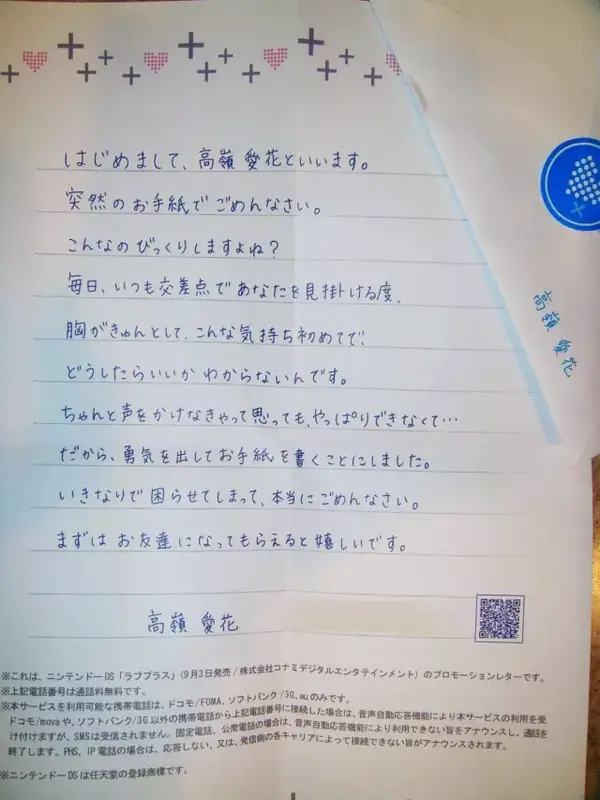 はじめまして、高嶺 愛花といいます。
突然のお手紙で ごめんなさい。
こんなの びっくりしますよね?
毎日、いつも交差点で あなたを見掛ける度、
胸がきゅんとして、こんな気持ち初めてで、
どうしたらいいか わからないんです。
ちゃんと声をかけなきゃって思っても、やっぱりできなくて…
だから、勇気を出してお手紙を書くことにしました。
いきなりで 困らせてしまって、本当に ごめんなさい。
まずは お友達になってもらえると嬉しいです。
高嶺 愛花
高嶺 愛花
※これは、ニンテンドーDS「ラブプラス」(9月3日発売/株式会社コナミデジタルエンタテインメント)のプロモーションレターです。
※上記電話番号は通話料無料です。
※本サービスを利用可能な携帯電話は、ドコモ/FOMA、ソフトバンク/3G、auのみです。
ドコモ/movaや、ソフトバンク/3G以外の携帯電話から上記電話番号に接続した場合は、音声自動応答機能により本サービスの利用を受
け付けますが、SMSは受信されません。固定電話、公衆電話の場合は、音声自動応答機能により利用できない旨をアナウンスし、通話を
終了します。PHS、IP電話の場合は、応答しない、又は、発信側の各キャリアによって接続できない旨がアナウンスされます。
※ニンテンドーDSは任天堂の登録商標です。